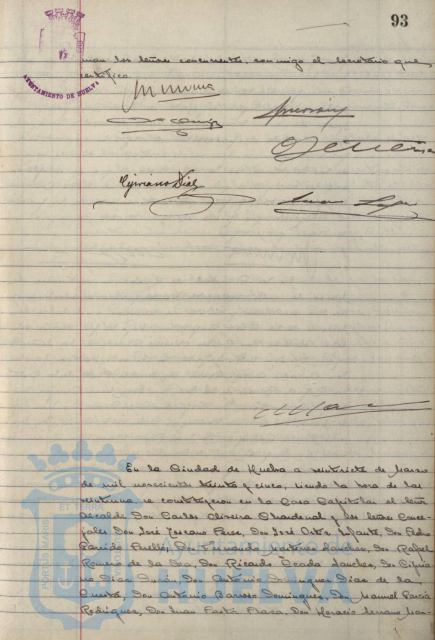 93
AYUNTAMIENTO DE HUELVA
man los señores concurrentes, conmigo el Secretario que
certifico.
Cipriano Díaz
En la Ciudad de Huelva a veintisiete de Marzo
de mil novecientos treinta y cinco, siendo la hora de las
veintiuna se constituyeron en la Casa Capitular el Señor
Alcalde Don Carlos Oliveira Chardenal y los Señores Conce-
jales Don José Don José Ortiz Infante, Don Pedro
Garrido Perelló, Don Fernando Martínez Sanchez, Don Rafael
Romero de la Don Ricardo Terada Sanchez, Don Cipria-
no Diaz Durán, Don Antonio Dominguez Diaz de la
Cuesta, Don Antonio Barroso Dominguez, Don Manuel García
Rodriguez, Don Juan Don Horacio Serrano
PORTUS MARIS ET TERRA